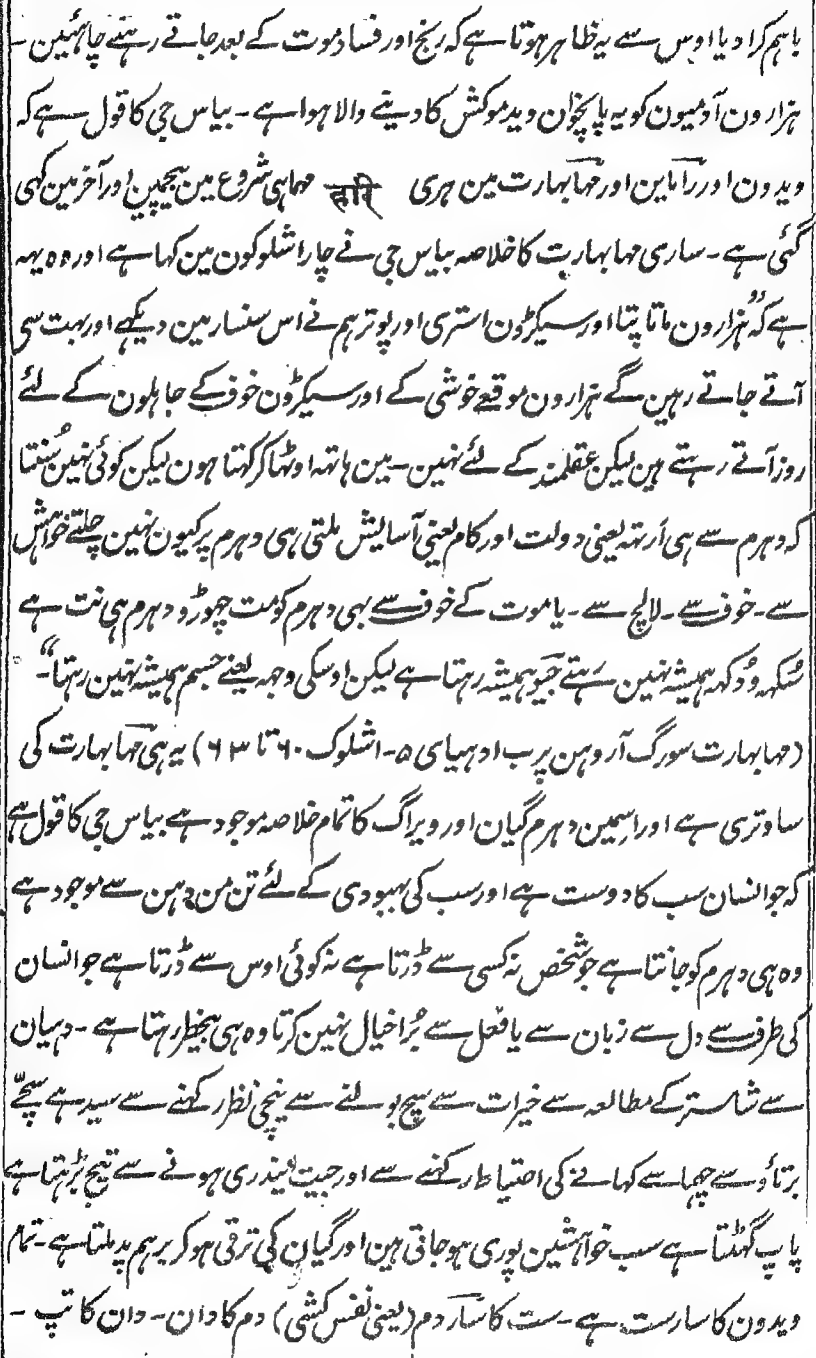 باہم کرا دیا اوس سے یہ ظاہر ہوتا ہے کہ رنج اور فساد موت کے بعد جاتے رہنے چاہئیں ۔
ہزارون آدمیون کو یہ پانچوان وید موکش کا دینے والا ہوا ہے ۔ بیاس جی کا قول ہے کہ
ویدون اور راماین اور مہابہارت مین ہری हरि مہما ہی شروع مین بیچمین اور آخر مین کہی
گئی ہے ۔ ساری مہابہارت کا خلاصہ بیاس جی نے چار اشلوکون مین کہا ہے اور وہ یہہ
ہے کہ ”ہزارون ماتا پتا اور سیکڑون استری اور پوتر ہم نے اس سنسار مین دیکہے اور بہت سی
آتے جاتے رہین گے ہزارون موقعے خوشی کے اور سیکڑون خوف کے جاہلون کے لئے
روز آتے رہتے ہین لیکن عقلمند کے لئے نہین ۔ مین ہاتہہ اوٹہا کر کہتا ہون لیکن کوئی نہین سُنتا
کہ دہرم سے ہی ارتہہ یعنی دولت اور کام یعنی آسایش ملتی ہی دہرم پر کیون نہین چلتے خواہش
سے ۔ خوف سے ۔ لالچ سے ۔ یا موت کے خوف سے بہی دہرم کو مت چہوڑو دہرم ہی نت ہے
سُکہہ و دُکہہ ہمیشہ نہین رہتے جیو ہمیشہ رہتا ہے لیکن اوسکی وجہہ یعنے جسم ہمیشہ نہین رہتا“۔
(مہابہارت سورگ آروہن پرب ادہیای ۵ ۔ اشلوک ۶۰ تا ۶۳) یہ ہی مہابہارت کی
ساوتری ہے اور اسمین دہرم گیان اور ویراگ کا تمام خلاصہ موجود ہے بیاس جی کا قول ہے
کہ جو انسان سب کا دوست ہے اور سب کی بہبودی کے لئے تن من دہن سے موجود ہے
وہ ہی دہرم کو جانتا ہے جو شخص نہ کسی سے ڈرتا ہے نہ کوئی اوس سے ڈرتا ہے جو انسان
کی طرف سے دل سے زبان سے یا فعل سے بُرا خیال نہین کرتا وہ ہی بیخطر رہتا ہے ۔ دہیان
سے شاستر کے مطالعہ سے خیرات سے سچ بولنے سے نیچی نظر رکہنے سے سیدہے سچّے
برتاؤ سے چہما سے کہانے کی احتیاط رکہنے سے اور جیت یندری ہونے سے تیج بڑہتا ہے
پاپ گہٹتا ہے سب خواہشین پوری ہو جاتی ہین اور گیان کی ترقی ہو کر برہم پد ملتا ہے ۔ تمام
ویدون کا سار ست ہے ۔ ست کا سار دم (یعنی نفس کشی) دم کا دان ۔ دان کا تپ ۔